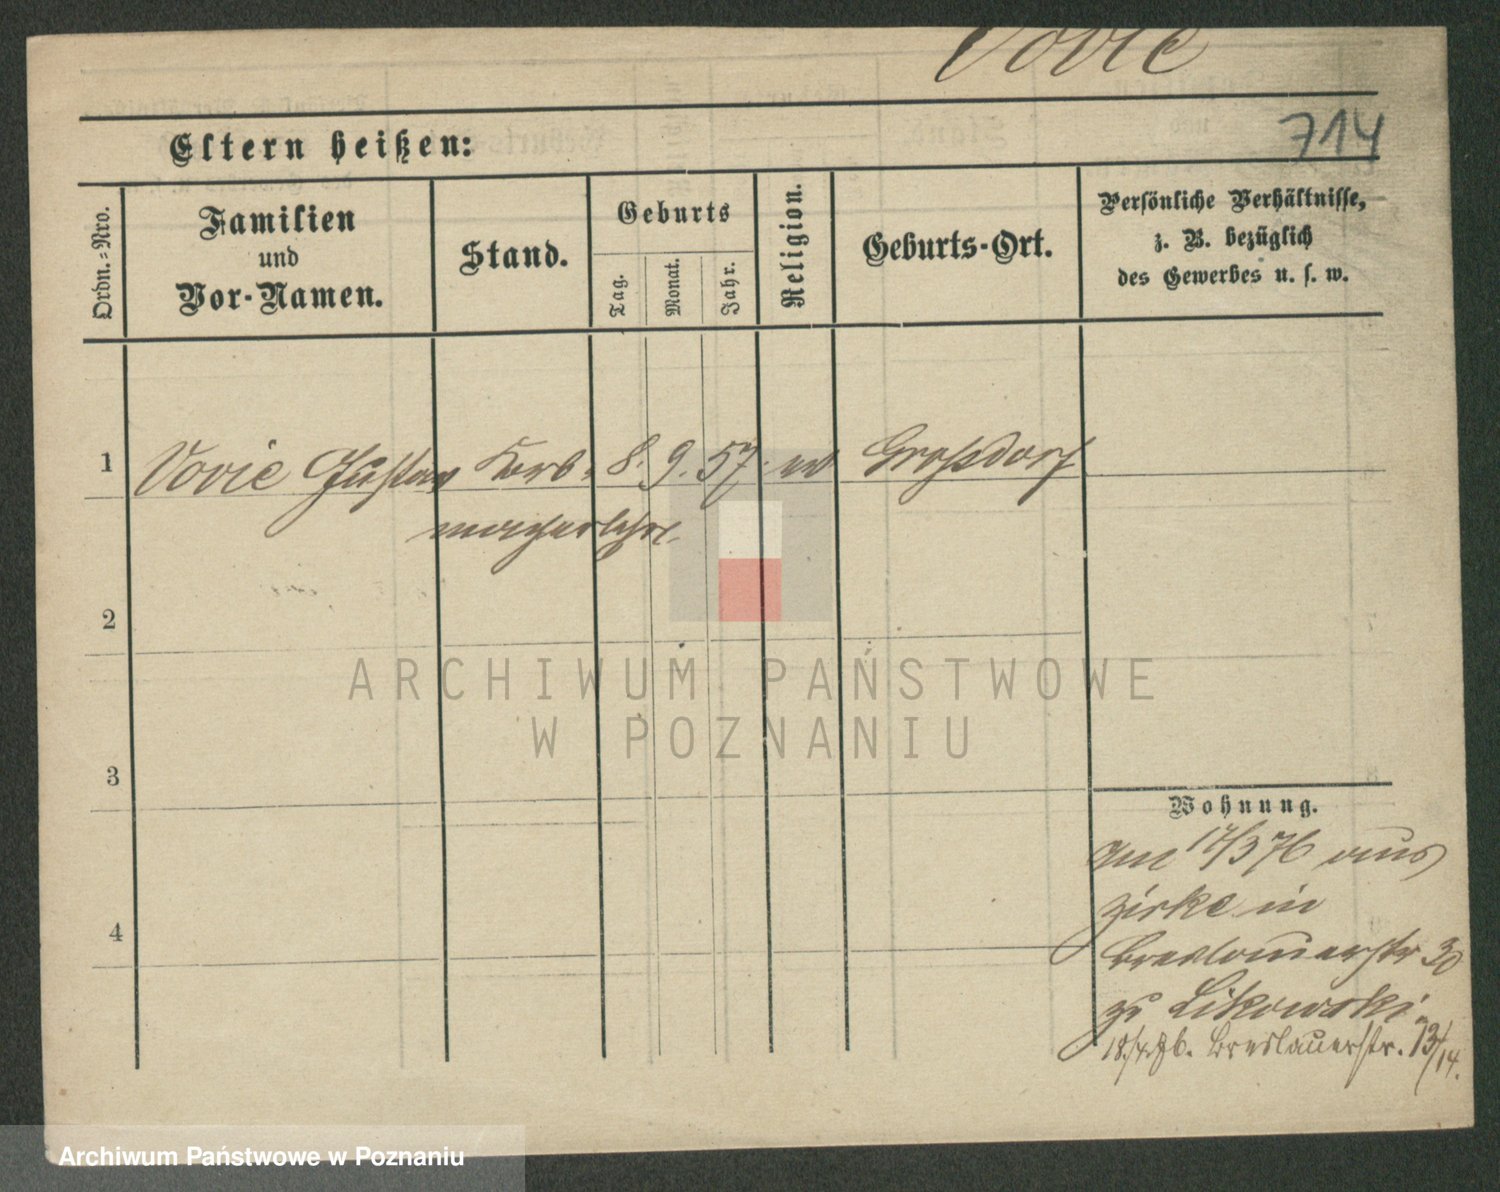 Vovie
714
Eltern heißen:
Ordn.=Nro.
Familien
und
Vor-Namen.
Stand.
Geburts
Tag.
Monat.
Jahr.
Religion.
Geburts-Ort.
Persönliche Verhältnisse,
z. B. bezüglich
des Gewerbes u. s. w.
1 Vovie Gustav Korb= 8. 9. 57. ev Großdorf
macherlehrl.
2
3
4
Wohnung.
Am 17/3 76 aus
Zirke in
Breslauerstr 30
zu Likowski.
18./4.76. Breslauerstr. 13/14.
ARCHIWUM PAŃSTWOWE
W POZNANIU
Archiwum Państwowe w Poznaniu